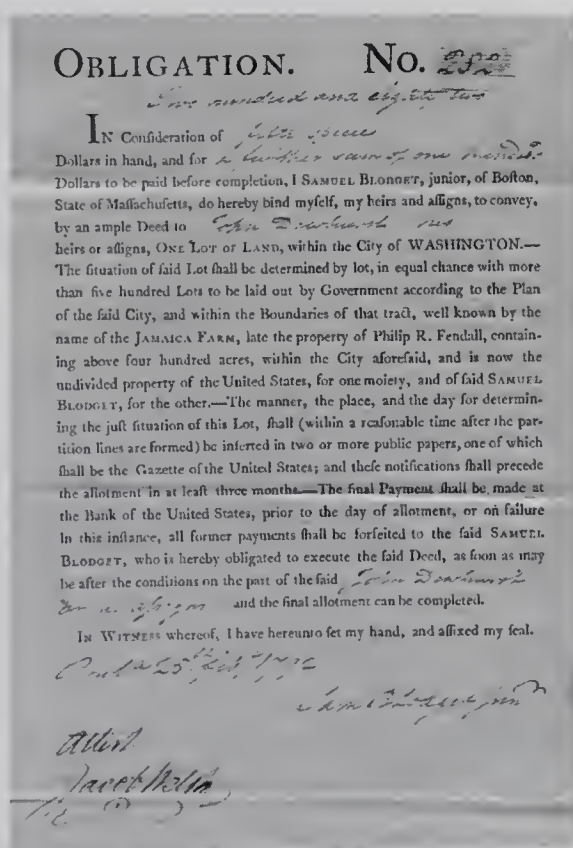 OBLIGATION. No. 582
Five hundred and eighty two
IN Conſideration of fifty ſpecie
Dollars in hand, and for a further sum of one hundred
Dollars to be paid before completion, I SAMUEL BLODGET, junior, of Boſton,
State of Maſſachuſetts, do hereby bind myſelf, my heirs and aſſigns, to convey,
by an ample Deed to John Dewhurst his
heirs or aſſigns, ONE LOT OF LAND, within the City of WASHINGTON.—
The ſituation of ſaid Lot ſhall be determined by lot, in equal chance with more
than five hundred Lots to be laid out by Government according to the Plan
of the ſaid City, and within the Boundaries of that tract, well known by the
name of the JAMAICA FARM, late the property of Philip R. Fendall, contain-
ing above four hundred acres, within the City aforeſaid, and is now the
undivided property of the United States, for one moiety, and of ſaid SAMUEL
BLODGET, for the other.—The manner, the place, and the day for determin-
ing the juſt ſituation of this Lot, ſhall (within a reaſonable time after the par-
tition lines are formed) be inſerted in two or more public papers, one of which
ſhall be the Gazette of the United States; and theſe notifications ſhall precede
the allotment in at leaſt three months.—The final Payment ſhall be made at
the Bank of the United States, prior to the day of allotment, or on failure
in this inſtance, all former payments ſhall be forfeited to the ſaid SAMUEL
BLODGET, who is hereby obligated to execute the ſaid Deed, as ſoon as may
be after the conditions on the part of the ſaid John Dewhurst
or aſſigns and the final allotment can be completed.
IN WITNESS whereof, I have hereunto ſet my hand, and affixed my ſeal.
25th
Saml Blodget junr
Attest
Jacob Welsh